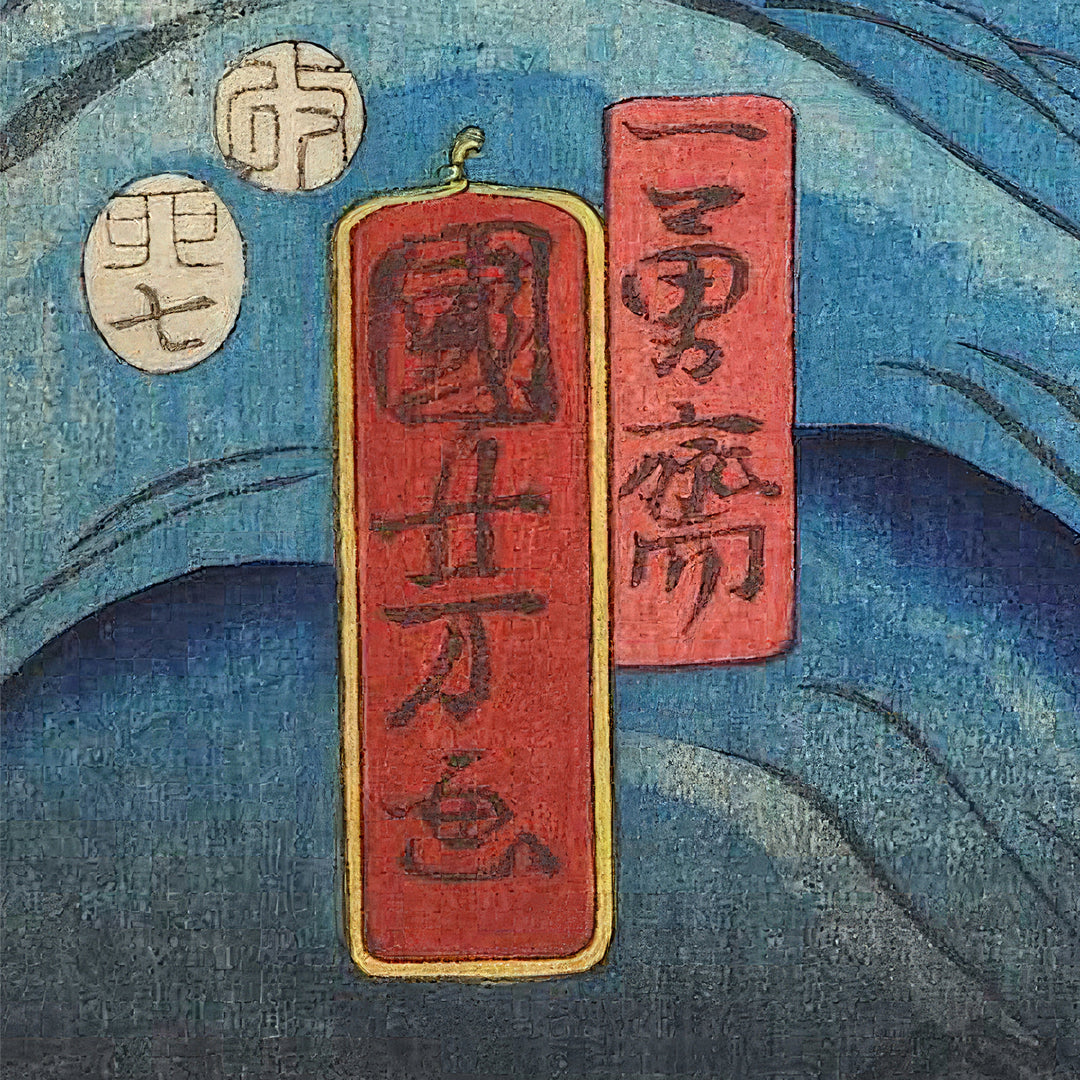 一勇齋
國芳画
改
七